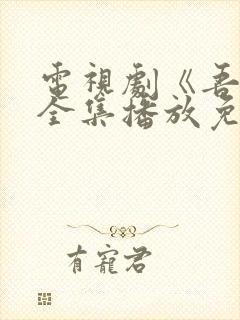 電視劇《吾
全集播放免
有寵君